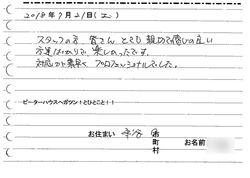 2018年9月21日(金)
スタッフの方 皆さん とても 親切で感じの良い
方達ばかりで、楽しかったです。
対応が素早く プロフェッショナルでした。
ピーターハウスへガツン!とひとこと!!
お住まい 守谷 市
町
村
お名前